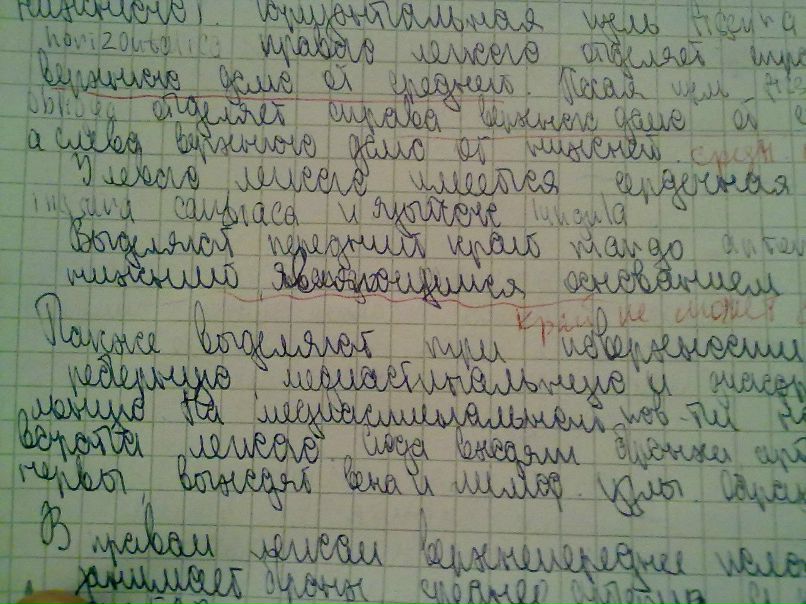 нижнюю). Горизонтальная щель fissura
horizontalis правого легкого отделяет
верхнюю долю от средней. Косая щель
obliqua отделяет справа верхнюю долю от
а слева верхнюю долю от нижней. средн.
У левого легкого имеется сердечная
cardiaca и язычок lingula
Выделяют передний край margo
нижний, являющимся основанием
край не может
Также выделяют три поверхности
реберную, медиастинальную и
На медиастинальной пов-ти
ворота легкого сюда входят бронхи
нервы, выходят вена и лимф. узлы.
В правом легком верхнепереднее
занимает бронх среднее